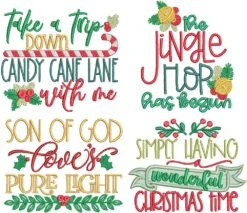 take a trip
DOWN
CANDY CANE LANE
with me
the
JINGLE
HOP
has begun
SON OF GOD
love's
PURE LIGHT
SIMPLY HAVING
a
wonderful
CHRISTMAS TIME